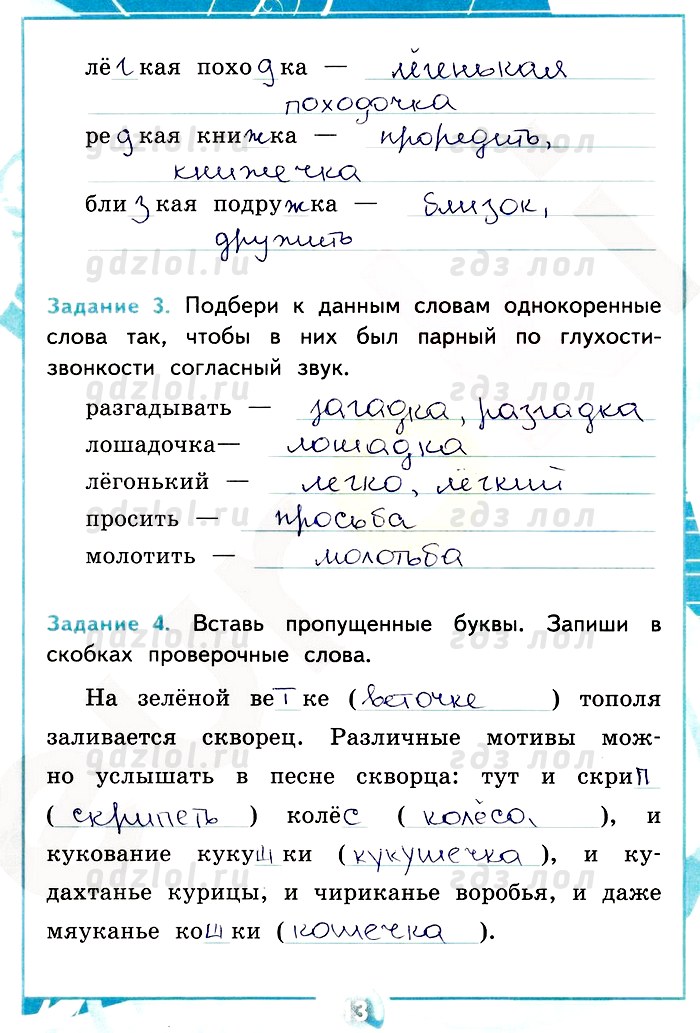 лёгкая походка — лёгенькая
походочка
редкая книжка — проредить,
книжечка
близкая подружка — близок,
дружить
gdzlol.ru гдз лол
Задание 3. Подбери к данным словам однокоренные
слова так, чтобы в них был парный по глухости-
звонкости согласный звук.
gdzlol.ru гдз лол
разгадывать — загадка, разгадка
лошадочка— лошадка
лёгонький — легко, лёгкий
просить — просьба
gdzlol.ru гдз лол
молотить — молотьба
Задание 4. Вставь пропущенные буквы. Запиши в
gdzlol.ru гдз лол
скобках проверочные слова.
На зелёной ветке (веточке) тополя
заливается скворец. Различные мотивы мож-
gdzlol.ru гдз лол
но услышать в песне скворца: тут и скрип
(скрипеть) колёс (колёсо), и
кукование кукушки (кукушечка), и ку-
gdzlol.ru гдз лол
дахтанье курицы, и чириканье воробья, и даже
мяуканье кошки (кошечка).
13